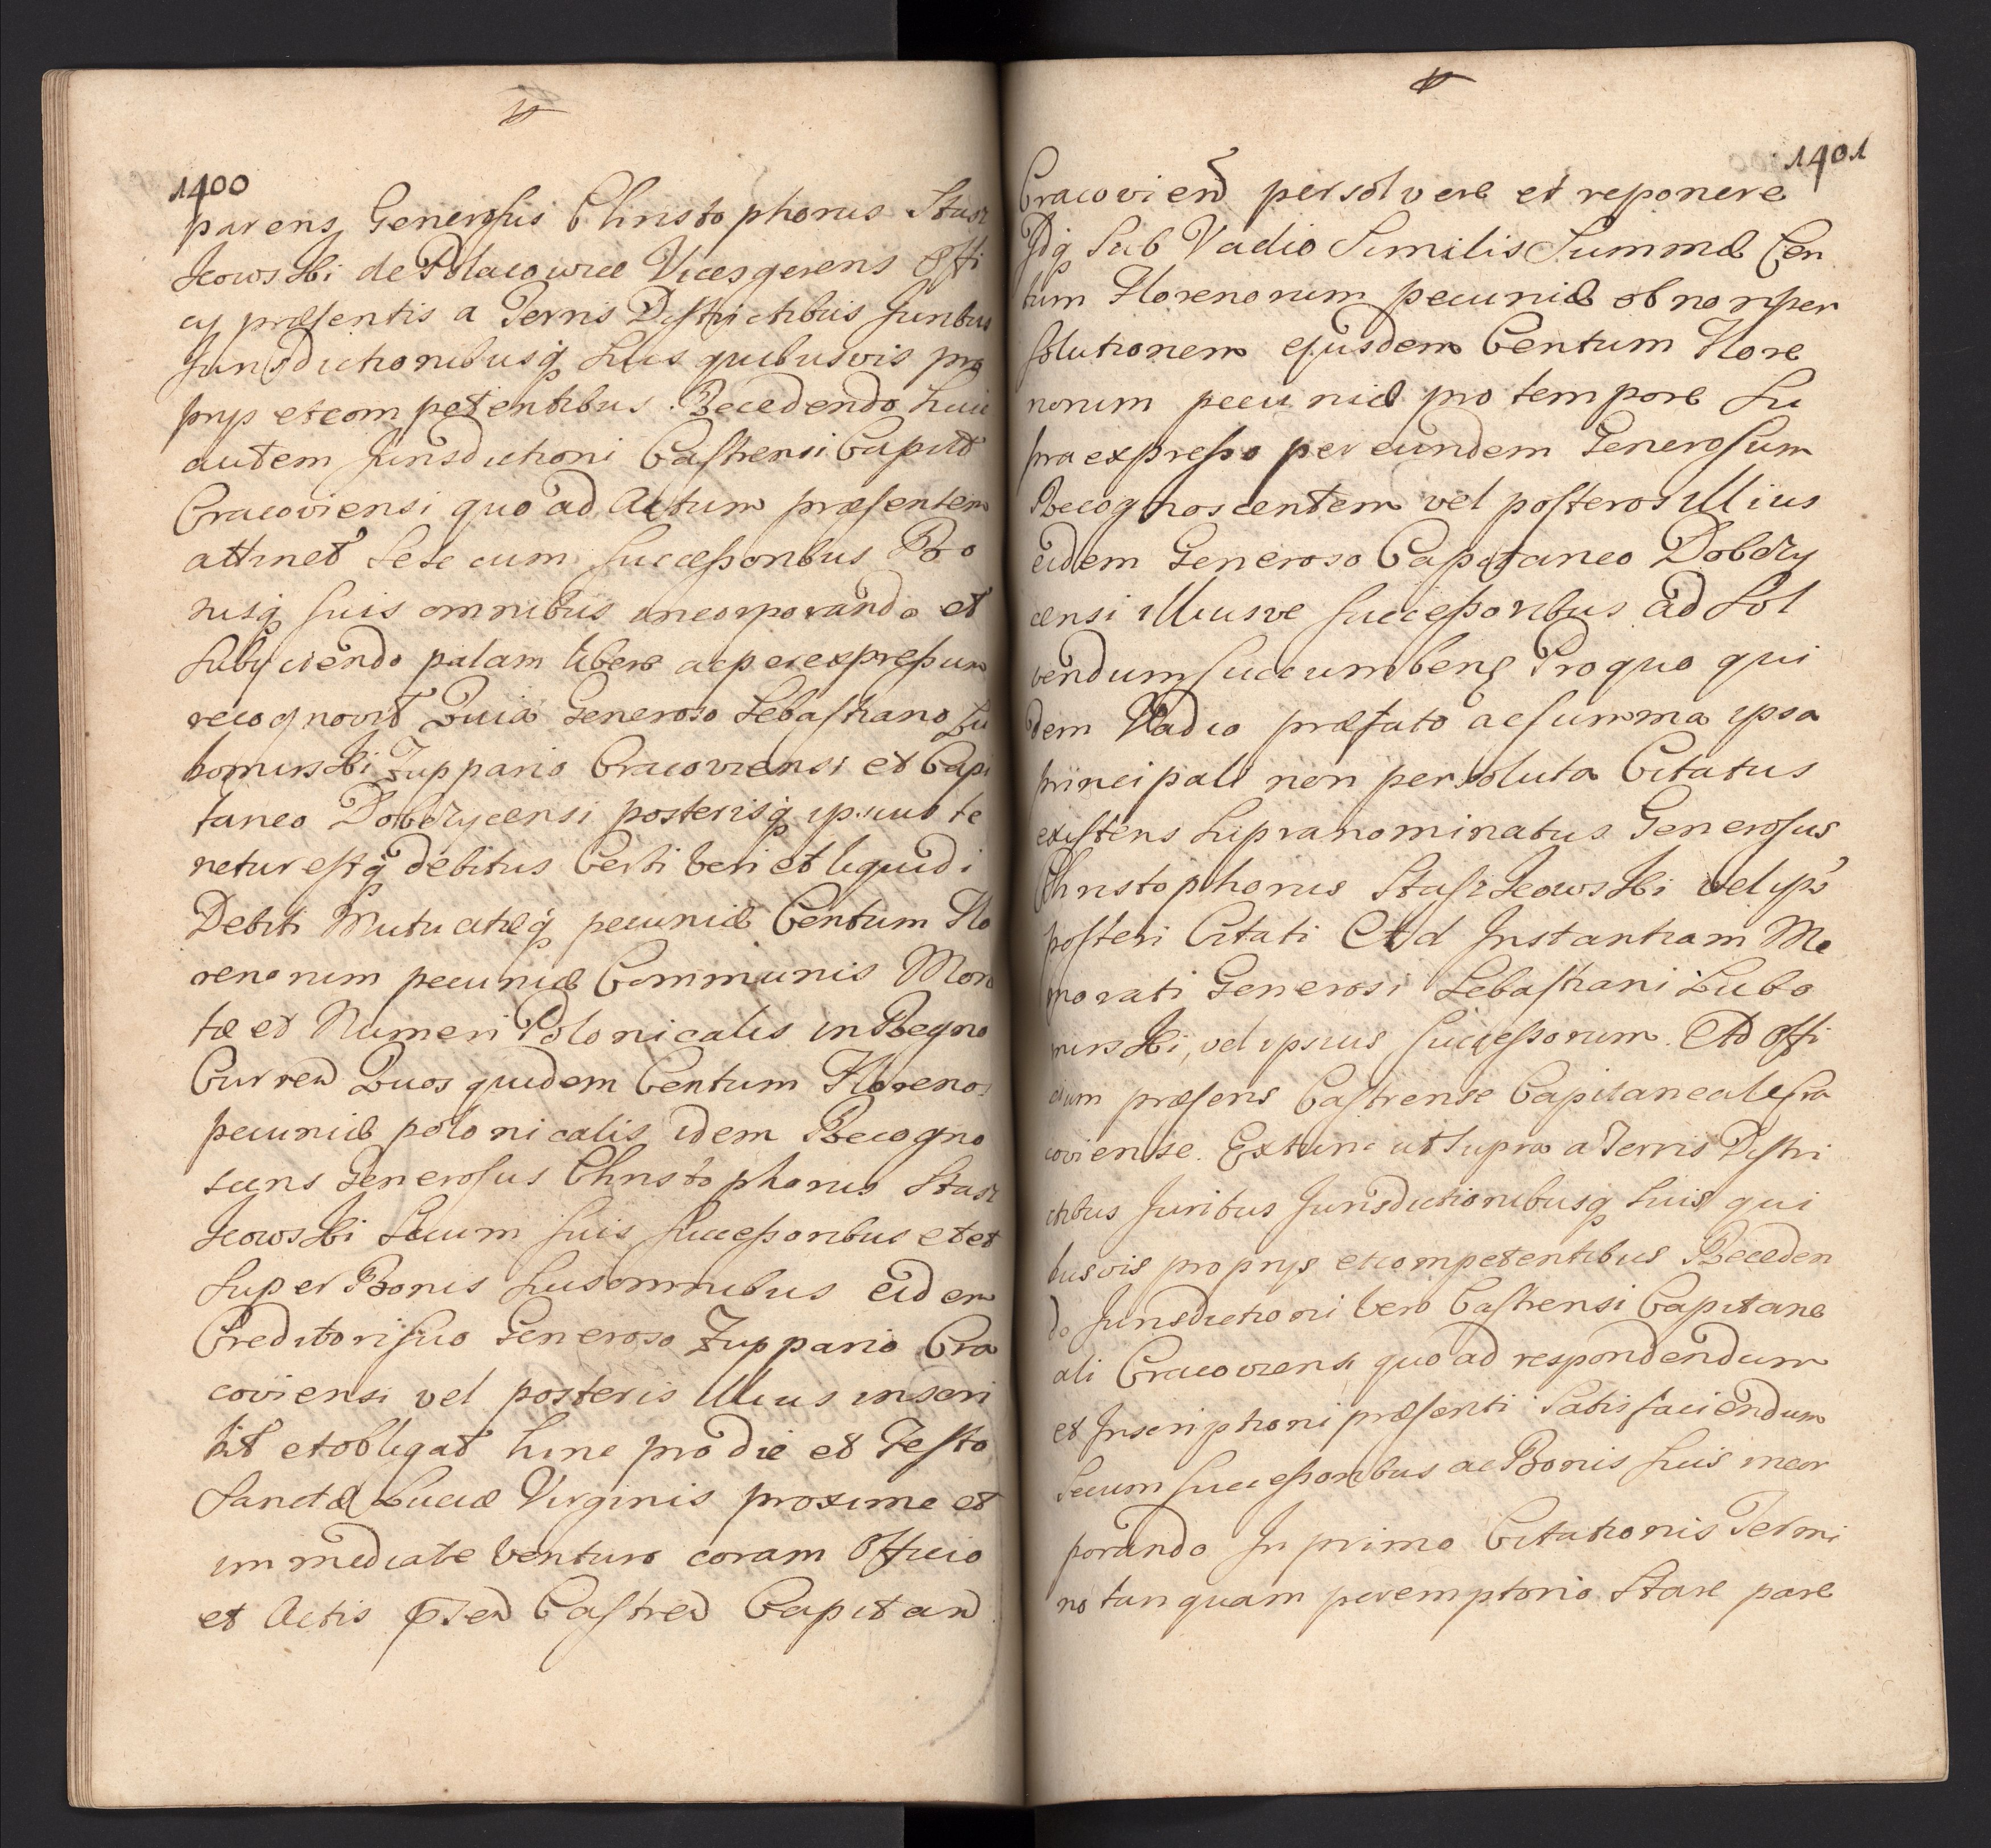 1400
parens Generosus Christophorus Stasz
kowski de Polacowice Vicesgerens Offi
cij præsentis a Terris Districtibus Juribus
Jurisdictionibusq suis quibusvis pro
prijs et competentibus Recedendo huic
autem Jurisdictioni Castrensi Capitt
Cracoviensi quo ad Actum præsentem
attinet sese cum successoribus Bo
nisq suis omnibus incorporando et
Subijciendo palam libere ac per expressum
recognovit Quia Generoso Sebastiano Lu
bomirski Zuppario Cracoviensi et Capi
taneo Dobczycensi posterisq ipsius te
netur estq debitus Certi veri et liquidi
Debiti Mutuatæq pecuniæ Centum Flo
renorum pecuniæ Communis Mone
tæ et Numeri Polonicalis in Regno
Curren Quos quidem Centum Florenos
pecuniæ polonicalis idem Recogno
scens Generosus Christophorus Stasz
kowski Secum suis successoribus et et
super Bonis suis omnibus eidem
Creditori suo Generoso Zuppario Cra
coviensi vel posteris illius inscri
bit et obligat hinc pro die et Festo
Sanctæ Luciæ Virginis proxime et
immediate venturo coram Officio
et Actis pnsen Castren Capitan
1401
Cracovien persolvere et reponere
Idq sub Vadio Similis Summæ Cen
tum Florenorum pecuniæ ob non per
solutionem ejusdem Centum Flore
norum pecuniæ pro tempore Su
pra expresso per eundem Generosum
Recognoscentem vel posteros illius
eidem Generoso Capitaneo Dobczy
censi illiusve successoribus ad sol
vendum succumbens Pro quo qui
dem Vadio præfato ac summa ipsa
principali non persoluta Citatus
existens supranominatus Generosus
Christophorus Staszkowski vel ips
posteri Citati Ad Instantiam Me
morati Generosi Sebastiani Lubo
mirski, vel ipsius successorum. Ad Offi
cium præsens Castrense Capitaneale Cra
coviense. Extunc ut supra a Terris Distri
ctibus Juribus Jurisdictionibusq suis qui
busvis proprijs et competentibus Receden
do Jurisdictioni vero Castrensi Capitane
ali Cracoviensi quo ad respondendum
et Inscriptioni præsenti Satisfaciendum
Secum successoribus ac Bonis suis incor
porando In primo Citationis Termi
no tanquam peremptorio Stare pare